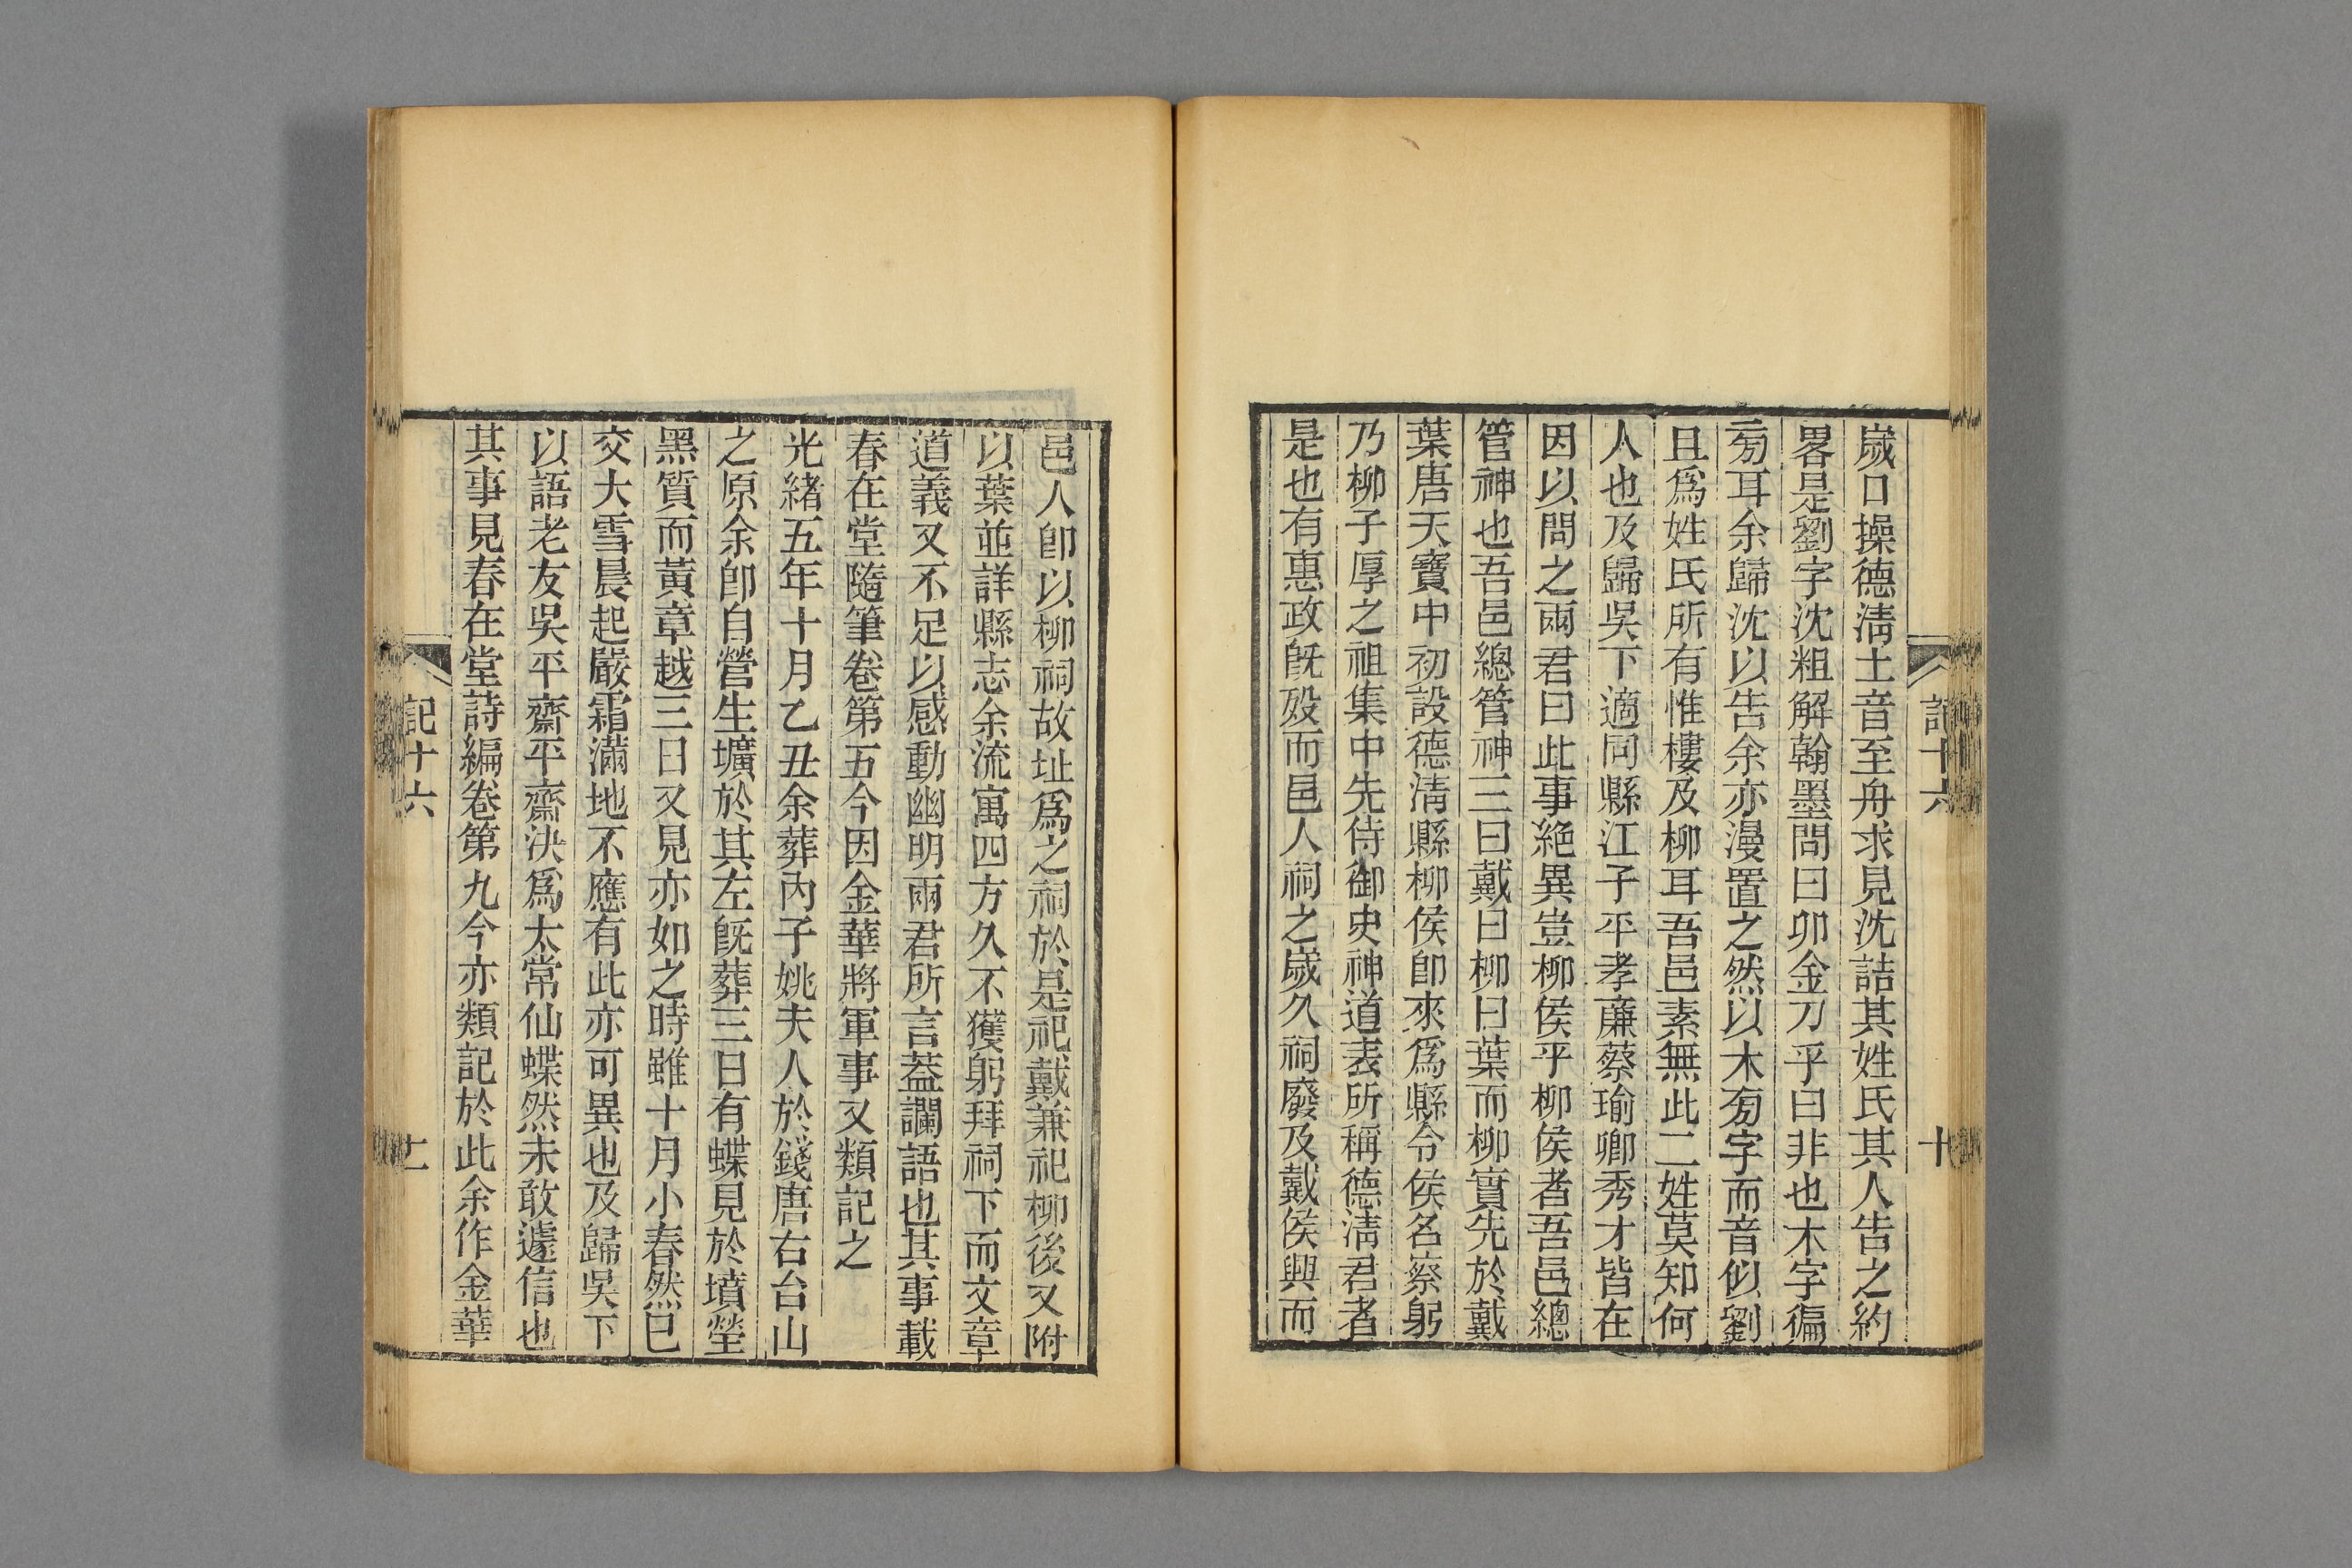 記十六
十
歲口操德淸土音至舟求見沈詰其姓氏其人告之約
畧是劉字沈粗解翰墨問曰卯金刀乎曰非也木字徧
㫄耳余歸沈以告余亦漫置之然以木㫄字而音似劉
且爲姓氏所有惟樓及柳耳吾邑素無此二姓莫知何
人也及歸吳下適同縣江子平孝廉蔡瑜卿秀才皆在
因以問之兩君曰此事絕異豈柳侯乎柳侯者吾邑總
管神也吾邑總管神三曰戴曰柳曰葉而柳實先於戴
葉唐天寶中初設德淸縣柳侯卽來爲縣令侯名察躬
乃柳子厚之祖集中先侍御史神道表所稱德淸君者
是也有惠政旣歿而邑人祠之歲久祠廢及戴侯興而
邑人卽以柳祠故址爲之祠於是祀戴兼祀柳後又附
以葉並詳縣志余流寓四方久不獲躬拜祠下而文章
道義又不足以感動幽明兩君所言蓋讕語也其事載
春在堂隨筆卷第五今因金華將軍事又類記之
光緒五年十月乙丑余葬內子姚夫人於錢唐右台山
之原余卽自營生壙於其左旣葬三日有蝶見於墳塋
黑質而黃章越三日又見亦如之時雖十月小春然已
交大雪晨起嚴霜滿地不應有此亦可異也及歸吳下
以語老友吳平齋平齋決爲太常仙蝶然未敢遽信也
其事見春在堂詩編卷第九今亦類記於此余作金華
記十六
十一